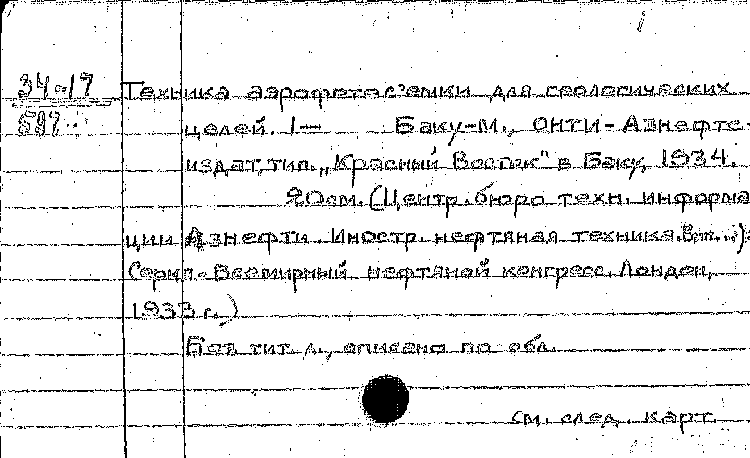 34-17
597
Техника аэрофотос'емки для геологических
целей. 1— Баку-М., ОНТИ-Азнефте-
издат, тип. „Красный Восток" в Баку, 1934.
20см. (Центр. бюро техн. информа
ции Азнефти. Иностр. нефтяная техника. Вып...);
Серия-Всемирный нефтяной конгресс. Лондон,
1933 г.)
Без тит. л., описано по обл.
см. след. карт.